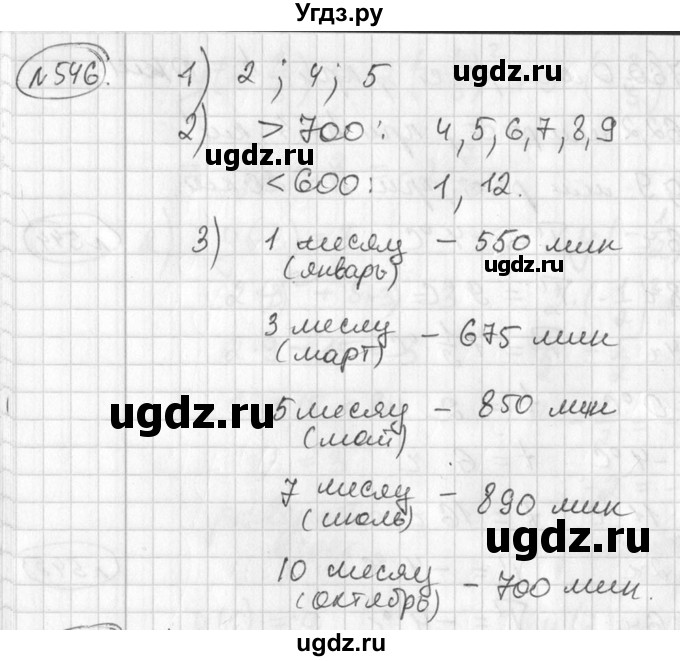 Угдз.ру
№546. 1) 2; 4; 5
ugdz.ru
2) > 700: 4, 5, 6, 7, 8, 9
ugdz.ru
< 600: 1, 12.
3) 1 месяц – 550 мин
(январь) ugdz.ru
3 месяц – 675 мин
(март)
ugdz.ru
5 месяц – 850 мин
(май)
7 месяц – 890 мин
(июль) ugdz.ru
10 месяц – 700 мин.
(октябрь)
ugdz.ru